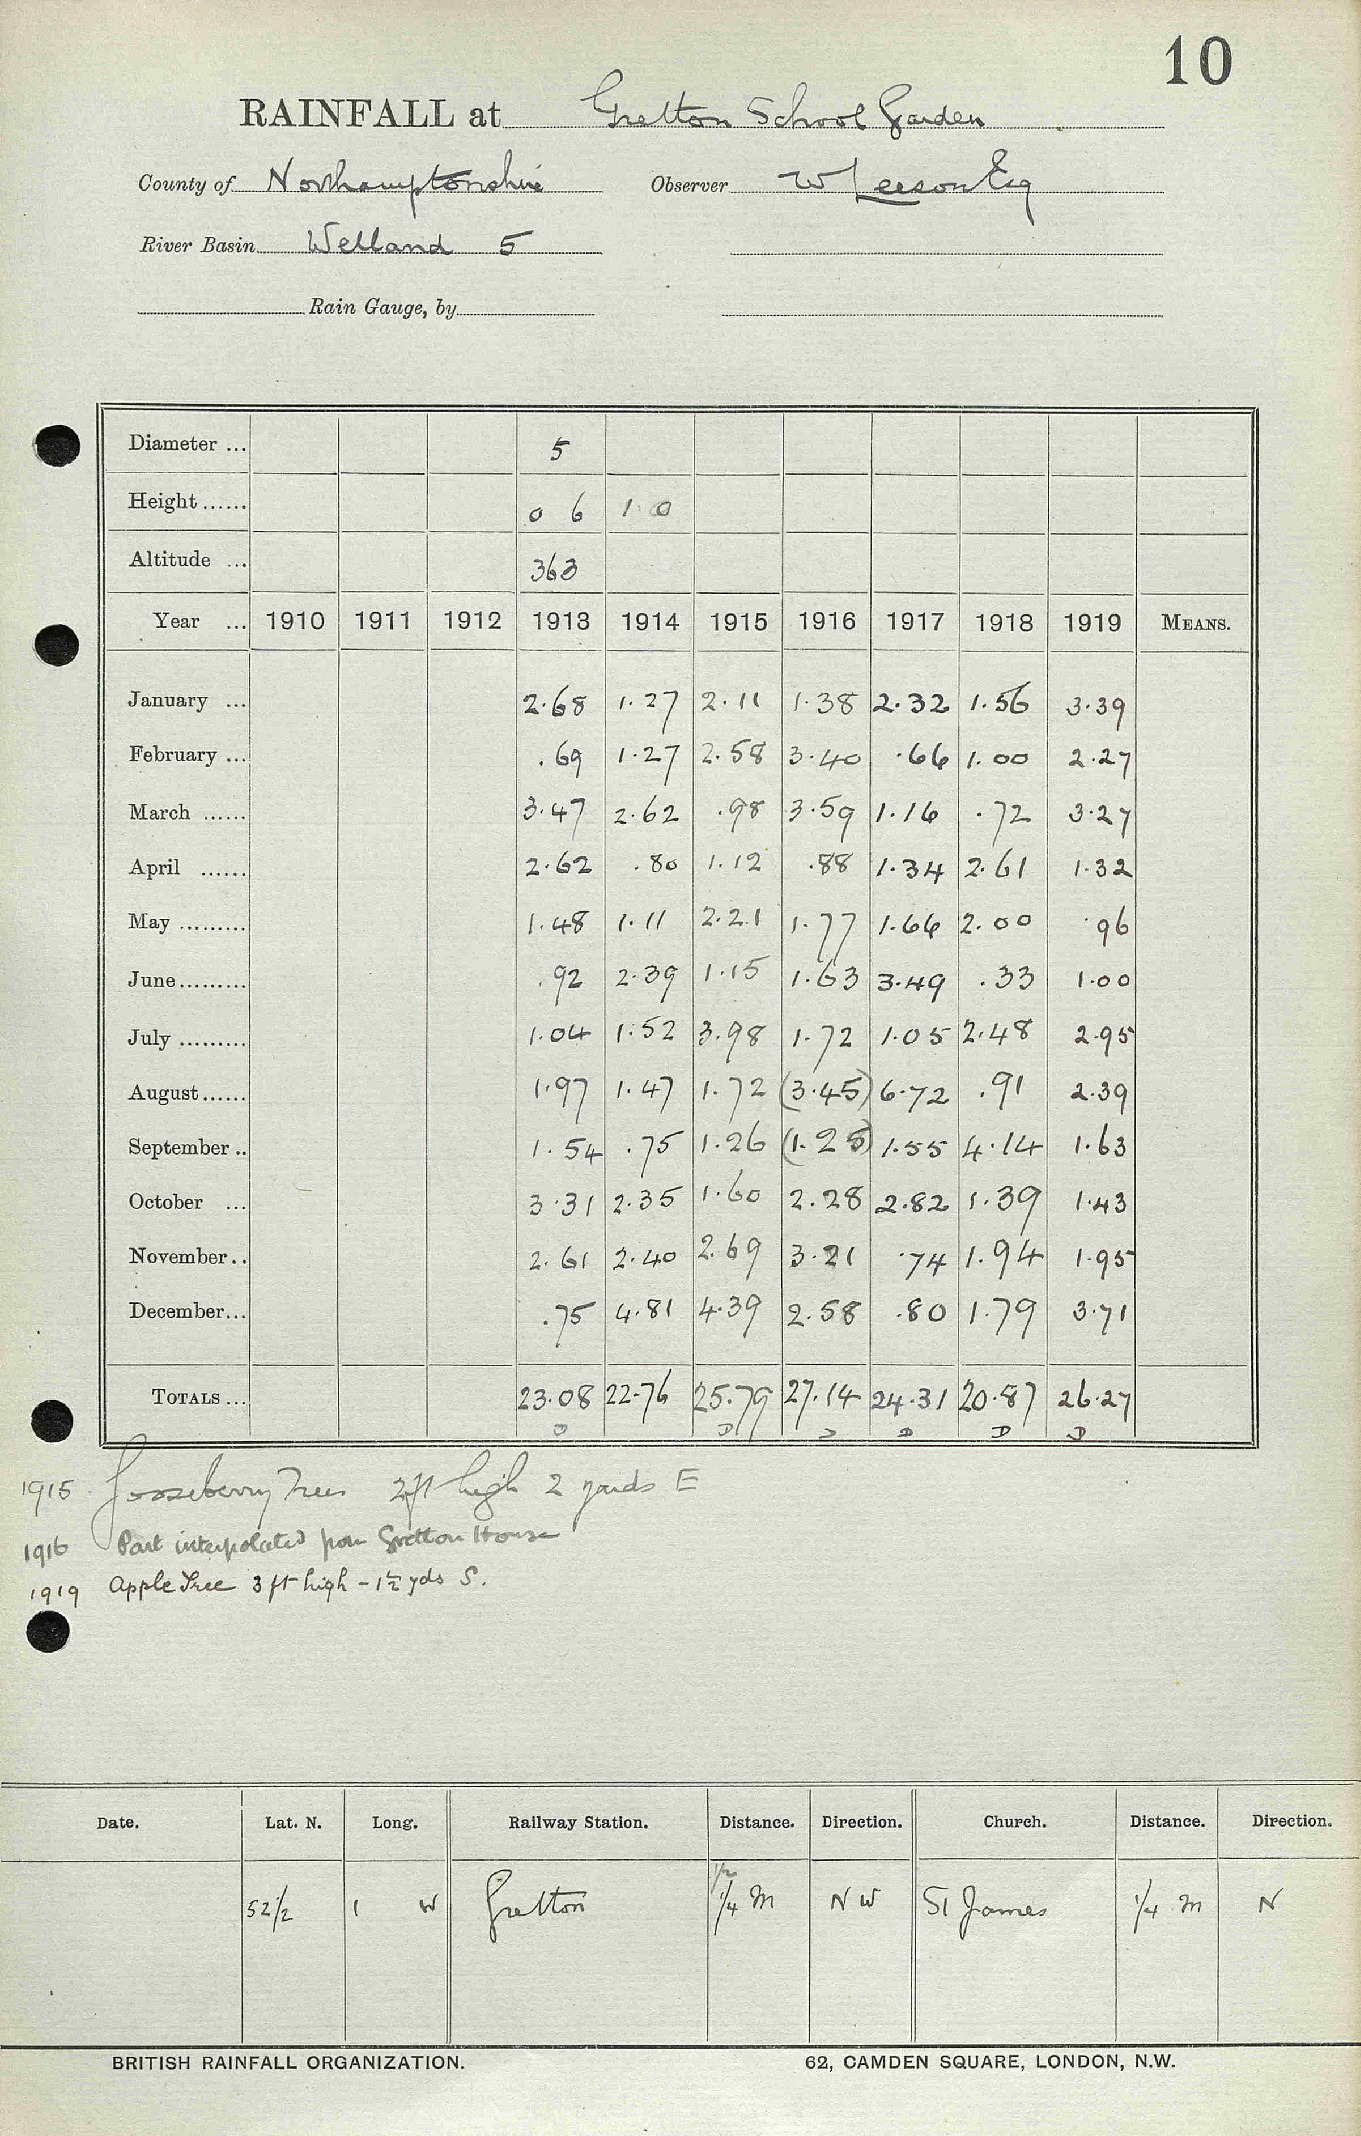 10
RAINFALL at Gretton School Garden
County of Northamptonshire Observer W Leeson Esq
River Basin Welland 5
Rain Gauge, by
Diameter ... 5
Height ...... 0 6 1 0
Altitude ... 363
Year ... 1910 1911 1912 1913 1914 1915 1916 1917 1918 1919 MEANS.
January ... 2.68 1.27 2.11 1.38 2.32 1.56 3.39
February ... .69 1.27 2.58 3.40 .66 1.00 2.27
March ...... 3.47 2.62 .98 3.59 1.16 .72 3.27
April ...... 2.62 .80 1.12 .88 1.34 2.61 1.32
May ......... 1.48 1.11 2.21 1.77 1.66 2.00 .96
June......... .92 2.39 1.15 1.63 3.49 .33 1.00
July ......... 1.04 1.52 3.98 1.72 1.05 2.48 2.95
August...... 1.97 1.47 1.72 (3.45) 6.72 .91 2.39
September .. 1.54 .75 1.26 (1.25) 1.55 4.14 1.63
October ... 3.31 2.35 1.60 2.28 2.82 1.39 1.43
November.. 2.61 2.40 2.69 3.21 .74 1.94 1.95
December... .75 4.81 4.39 2.58 .80 1.79 3.71
TOTALS ... 23.08 22.76 25.79 27.14 24.31 20.87 26.27
D D D D D D
1915 Gooseberry Trees 2ft high 2 yards E
1916 Part interpolated from Gretton House
1919 Apple Tree 3 ft high - 1½ yds S.
Date. Lat. N. Long. Railway Station. Distance. Direction. Church. Distance. Direction.
1/2
52 1/2 1 W Gretton 1/4 m N W St James 1/4 m N
BRITISH RAINFALL ORGANIZATION. 62, CAMDEN SQUARE, LONDON, N.W.